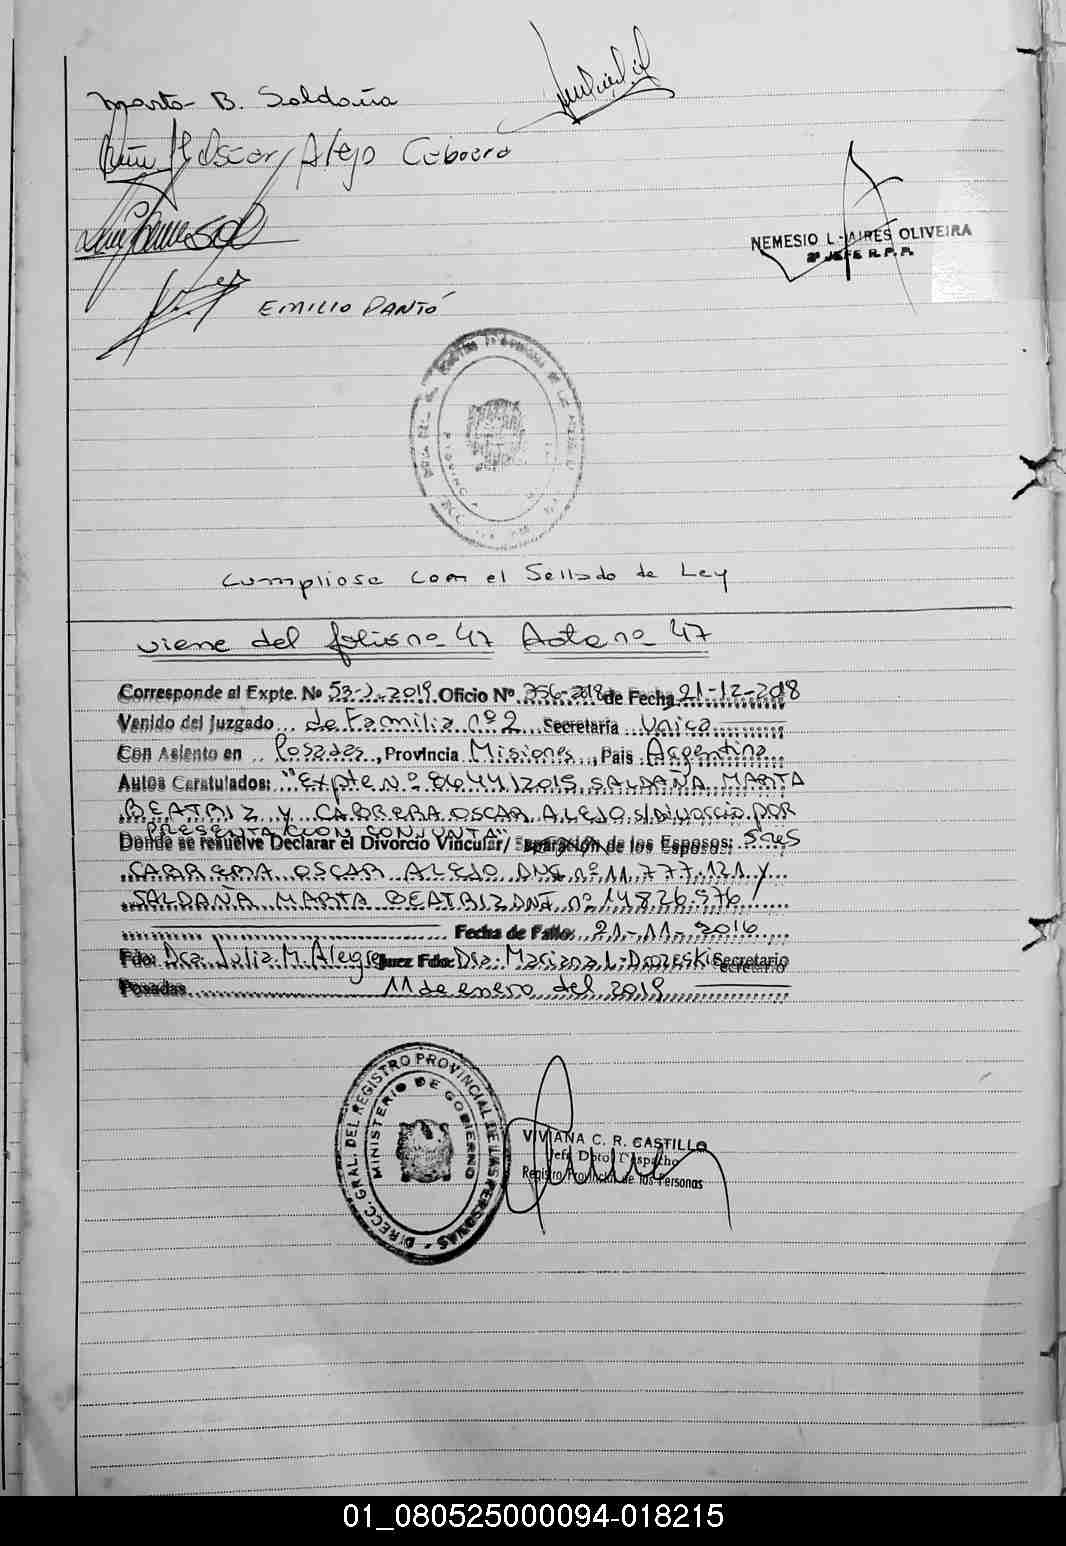 Marta B. Saldaña
Oscar Alejo Cabrera
NEMESIO L. AIRES OLIVEIRA
2º JEFE R. P. P.
EMILIO PANTÓ
Cumpliose con el Sellado de Ley
viene del folio nº 47 Acta nº 47
Corresponde al Expte. Nº 53-J-2019 Oficio Nº 356-2018 de Fecha 21-12-2018
Venido del Juzgado de Familia nº 2 Secretaría Unica
Con Asiento en Posadas, Provincia Misiones, País Argentina
Autos Caratulados: "Expte Nº 8644/2015 SALDAÑA MARTA
BEATRIZ Y CABRERA OSCAR ALEJO s/Divorcio POR
PRESENTACION CONJUNTA"
Donde se resuelve Declarar el Divorcio Vincular/ Separación de los Esposos: Sres
CABRERA OSCAR ALEJO DNI nº 11.777.121 y
SALDAÑA MARTA BEATRIZ DNI nº 14.826.976
Fecha de Fallo: 21-11-2016
Fdo: Dra. Julia M. Alegre Juez Fdo: Dra. Mariana L. Secretario
Posadas 11 de enero del 2019
DIRECC. GRAL. DEL REGISTRO PROVINCIAL DE LAS PERSONAS
MINISTERIO DE GOBIERNO
VIVIANA C. R. CASTILLO
Jefe Dpto. Despacho
Registro Provincial de las Personas
01_080525000094-018215